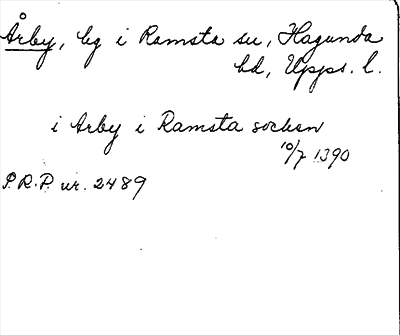 Årby, by i Ramsta sn, Hagunda
hd, Upps. l.
i Arby i Ramsta socken
10/7 1390
P.R.P. nr. 2489